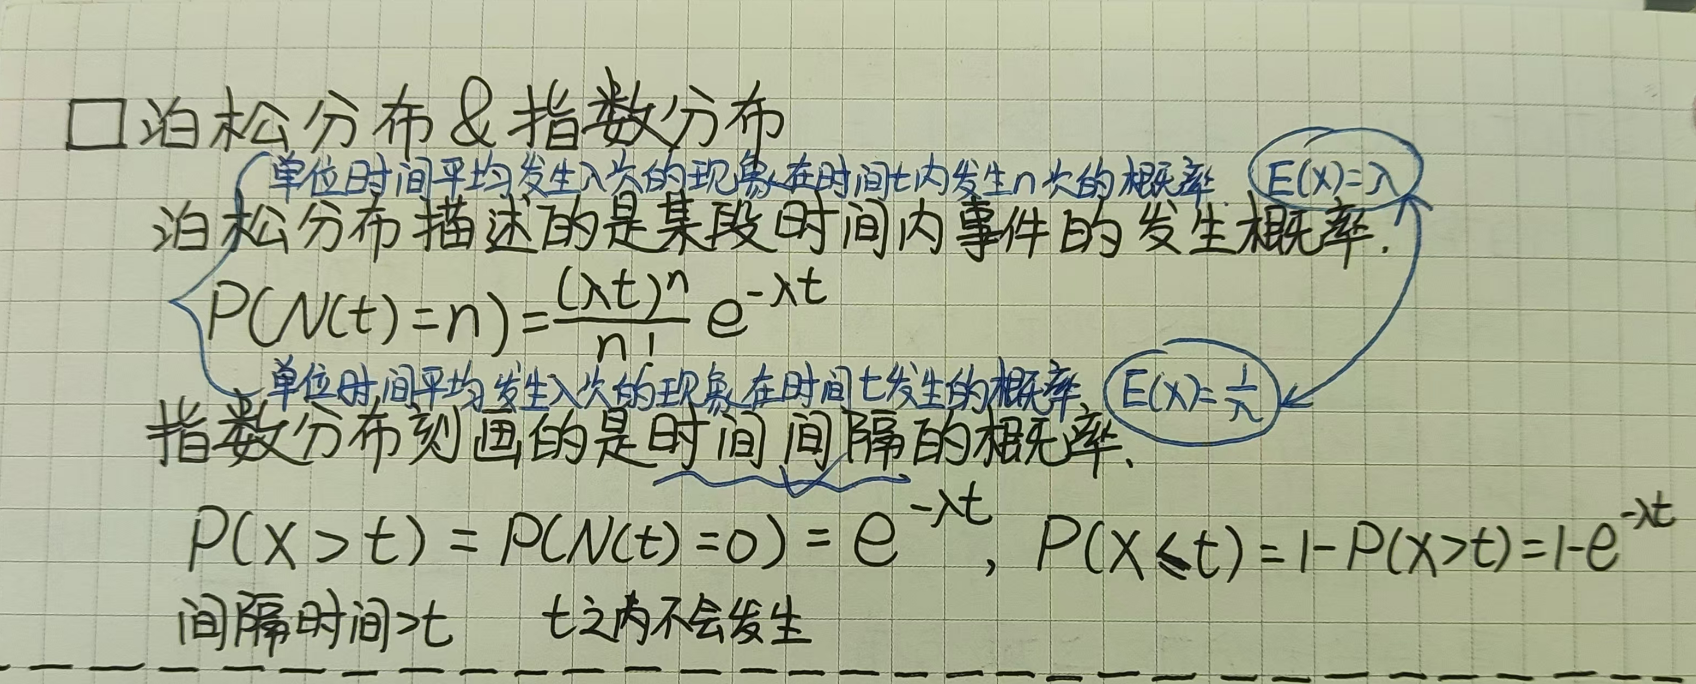 □泊松分布&指数分布
单位时间平均发生λ次的现象,在时间t内发生n次的概率 E(X)=λ
泊松分布描述的是某段时间内事件的发生概率.
P(N(t)=n)=\frac{(λt)^n}{n!} e^{-λt}
单位时间平均发生λ次的现象,在时间t发生的概率 E(X)=\frac{1}{λ}
指数分布刻画的是时间间隔的概率.
P(X>t)=P(N(t)=0)=e^{-λt}, P(X≤t)=1-P(X>t)=1-e^{-λt}
间隔时间>t t之内不会发生